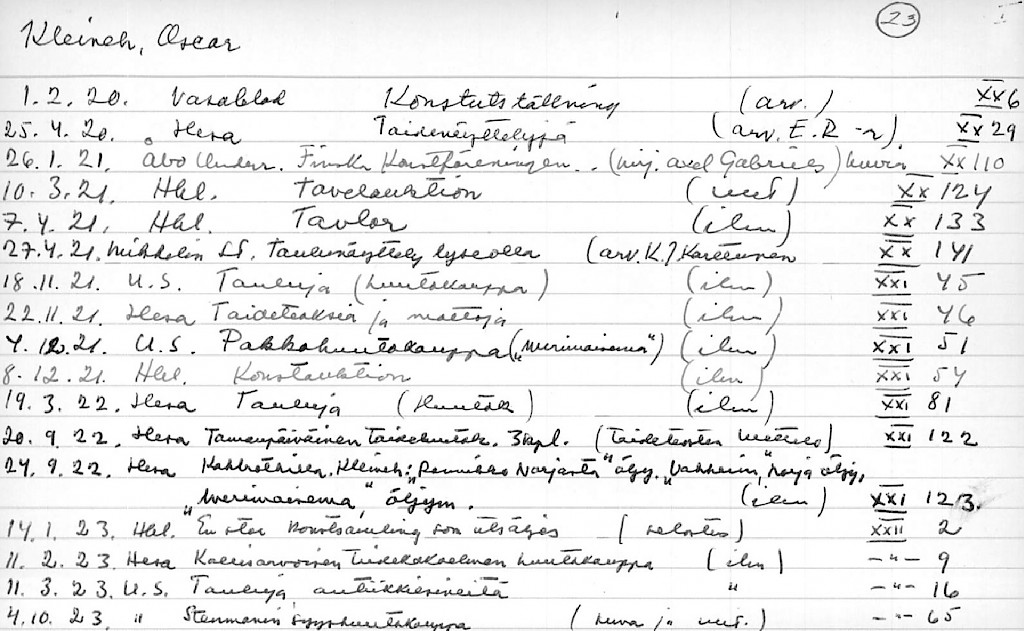 23 I
Kleineh, Oscar
1.2.20. Vasablad Konstutställning (arv.) XX 6
25.4.20. Hesa Taidenäyttelyjä (arv. E.R-n). XX 29
26.1.21. Åbo Underr. Finska Konstföreningen.. (kirj. Axel Gabriels) kuvia XX 110
10.3.21. Hbl. Tavelauktion (uut) XX 124
7.4.21. Hbl. Tavlor (ilm) XX 133
27.4.21. Mikkelin S. Taulunäyttely lyseolla (arv. K.) Karttunen XX 141
18.11.21. U.S. Tauluja (huutokauppa) (ilm) XXI 45
22.11.21. Hesa Taideteoksia ja mattoja (ilm) XXI 46
4.12.21. U.S. Pakkohuutokauppa („Merimaisema“) (ilm) XXI 51
8.12.21. Hbl. Konstauktion (ilm) XXI 54
19.3.22. Hesa Tauluja (Huutok) (ilm) XXI 81
20.9.22. Hesa Tämänpäiväinen taidehuutok. 3 kpl. (Taideteosten luettelo) XXI 122
24.9.22. Hesa Kleineh; Norjasta" öljy. Norja öljy,
„Merimaisema“, öljym. (ilm) XXI 123.
14.1.23. Hbl. En stor konstsamling som utsäljes (selostus) XXII 2
11.2.23. Hesa Kallisarvoisen taidekokoelman huutokauppa (ilm) -"- 9
11.3.23. U.S. Tauluja, antiikkiesineitä " -"- 16
4.10.23. " Stenmanin syyshuutokauppa (kuva ja uut.) -"- 65